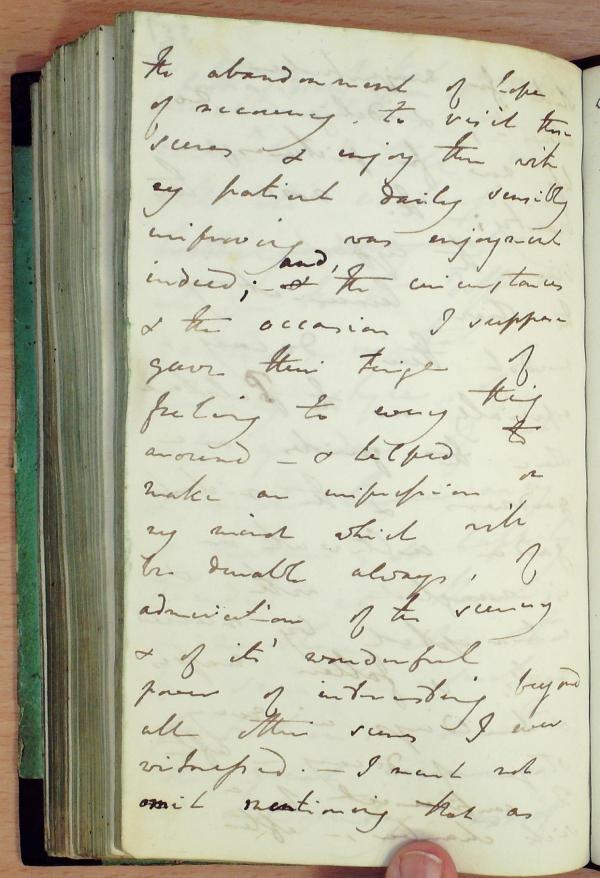 the abandonment of hope
of recovery. to visit these
scenes & enjoy them with
my patient daily sensibly
improving was enjoyment
indeed; - and, the circumstances
& the occasion I suppose
gave their tinge of
feeling to every thing
around - & helped to
make an impression on
my mind which will
be durable always, of
admiration of the scenery
& of its' wonderful
power of interesting beyond
all other scenes I ever
witnessed. - I must not
omit mentioning that as